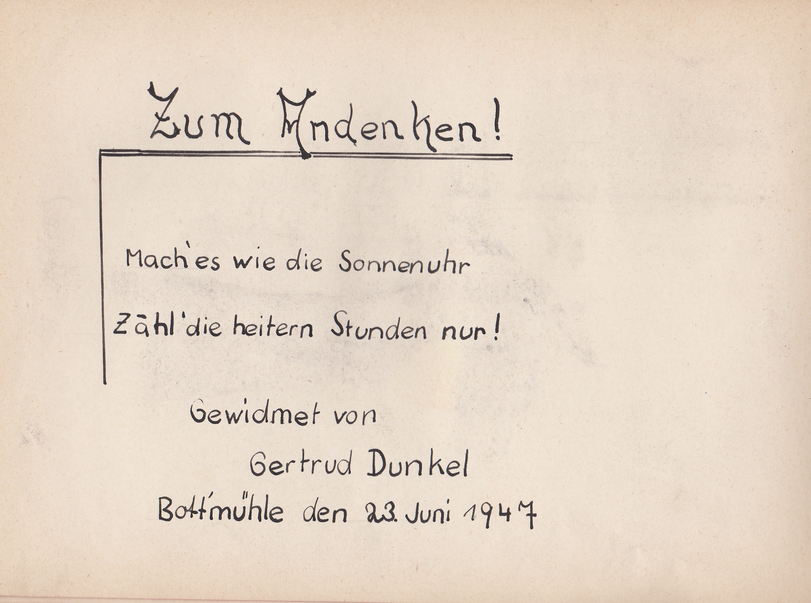 Zum Andenken!
Mach'es wie die Sonnenuhr
Zähl'die heitern Stunden nur!
Gewidmet von
Gertrud Dunkel
Bott'mühle den 23. Juni 1947